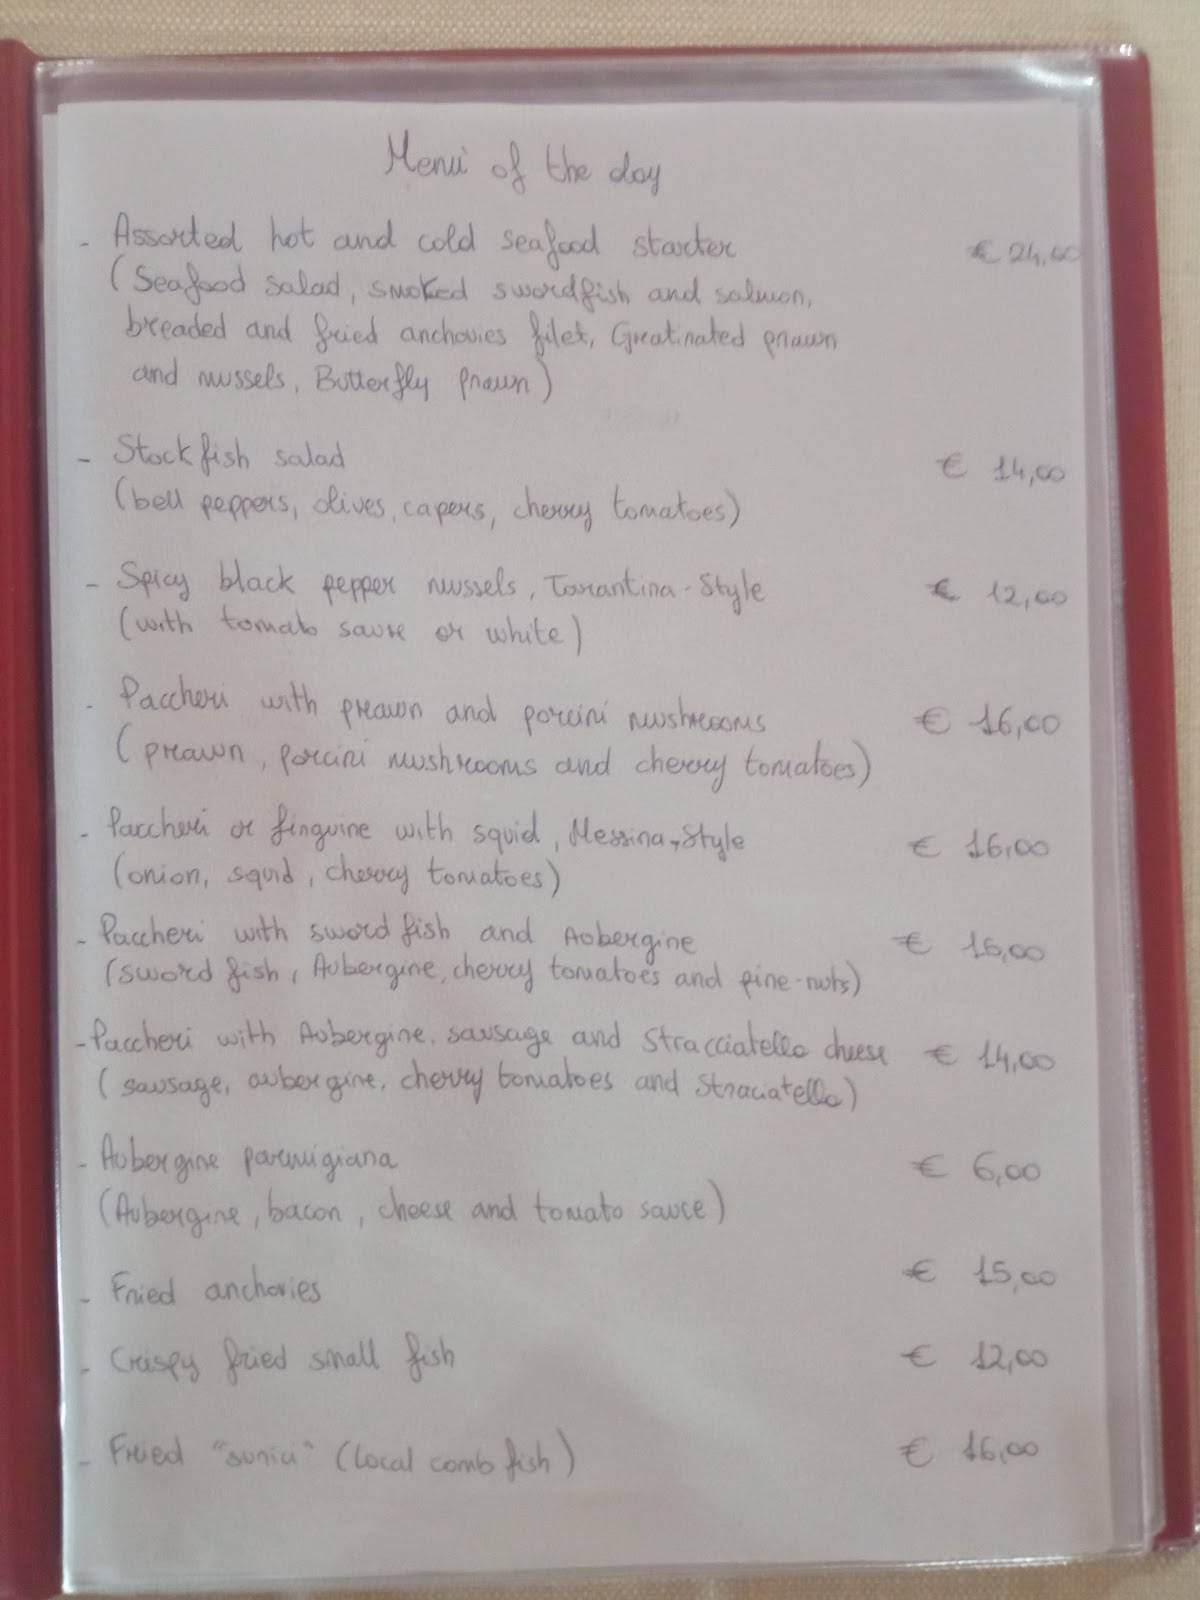 Menù of the day
- Assorted hot and cold seafood starter € 24,00
(Seafood salad, smoked swordfish and salmon,
breaded and fried anchovies filet, Greatinated prawn
and mussels, Butterfly prawn)
- Stockfish salad € 14,00
(bell peppers, olives, capers, cherry tomatoes)
- Spicy black pepper mussels, Tarantina-Style € 12,00
(with tomato sause or white)
- Paccheri with prawn and porcini mushrooms € 16,00
(prawn, porcini mushrooms and cherry tomatoes)
- Paccheri or finguine with squid, Messina-Style € 16,00
(onion, squid, cherry tomatoes)
- Paccheri with sword fish and Aobergine € 16,00
(sword fish, Aubergine, cherry tomatoes and pine-nuts)
- Paccheri with Aubergine, sausage and Stracciatella cheese € 14,00
(sausage, aubergine, cherry tomatoes and Straciatella)
- Aubergine parmigiana € 6,00
(Aubergine, bacon, cheese and tomato sauce)
- Fried anchovies € 15,00
- Crispy fried small fish € 12,00
- Fried "surici" (local comb fish) € 16,00